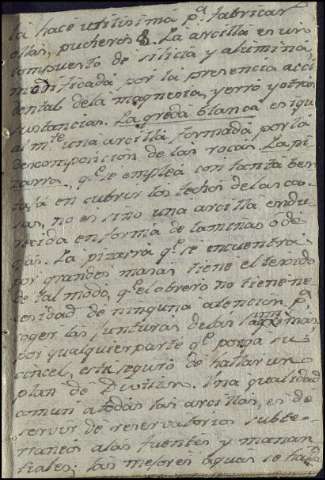 la hace utilisima pa. fabricar
ollas, pucheros &. La arcilla es un
compuesto de silicia y alumina,
modificada por la presencia acci
dental de la magnesia, yerro y otras
sustancias. La greda blanca es igu
almte. una arcilla formada por la
descomposicion de las rocas. La pi
zarra, qe. se emplea con tanta ven
taja en cubrir los techos de las ca
sas, no es sino una arcilla endu
recida en forma de laminas ó de
gas. La pizarra qe. se encuentra
por grandes masas tiene el texido
de tal modo, qe. el obrero no tiene ne
cesidad de ninguna atencion pa.
coger las junturas de las laminas,
por qualquier parte qe. ponga su
cincel, está seguro de hallar un
plan de division. Una qualidad
comun a todas las arcillas, es de
servir de reservatorios subte-
rraneos a las fuentes y manan
tiales; las mejores aguas se halla